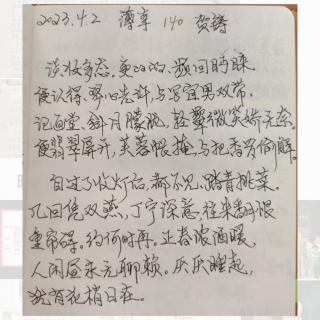 2023.4.2 薄幸 140 贺铸
淡妆多态,更的的、频回眄睐
便认得、琴心先许,与写宜男双带。
记画堂、斜月朦胧,轻颦微笑娇无奈
便翡翠屏开,芙蓉帐掩,与把香罗偷解。
自过了收灯后,都不见、踏青挑菜。
几回凭双燕,丁宁深意,往来翻恨
重帘碍。约何时再,正春浓酒暖,
人闲昼永无聊赖。厌厌睡起,
犹有花梢日在。